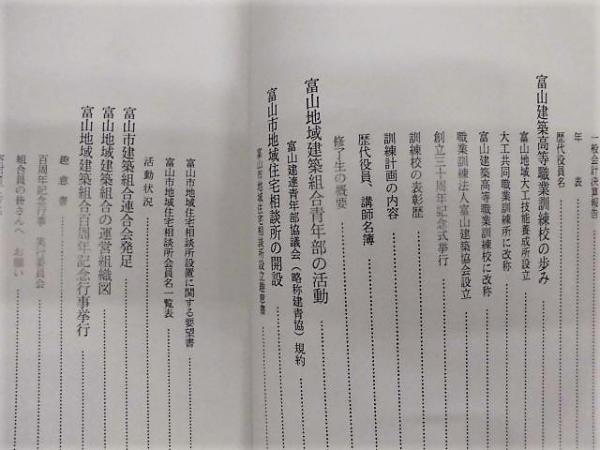 一般会計決算報告
年表
歴代役員名
富山建築高等職業訓練校の歩み
富山地域大工技能養成所設立
大工共同職業訓練所に改称
富山建築高等職業訓練校に改称
職業訓練法人富山建築協会設立
創立三十周年記念式挙行
訓練校の表彰歴
訓練計画の内容
歴代役員、講師名簿
修了生の概要
富山地域建築組合青年部の活動
富山建連青年部協議会(略称建青協)規約
富山市地域住宅相談所の開設
富山市地域住宅相談所設立趣意書
富山市地域住宅相談所設置に関する要望書
富山市地域住宅相談所会員名一覧表
活動状況
富山市建築組合連合会発足
富山地域建築組合の運営組織図
富山地域建築組合百周年記念行事挙行
趣意書
百周年記念行事 実行委員会
組合員の皆さんへ お願い